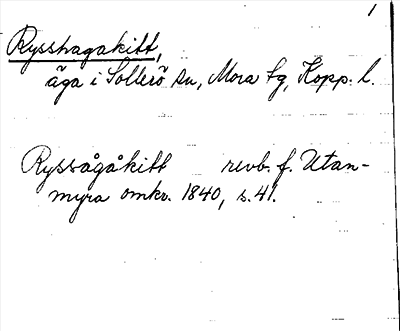 1
Rysshagakitt,
äga i Sollerö sn, Mora tg, Kopp. l.
Ryssågåkitt revb. f. Utan-
myra omkr. 1840, s. 41.